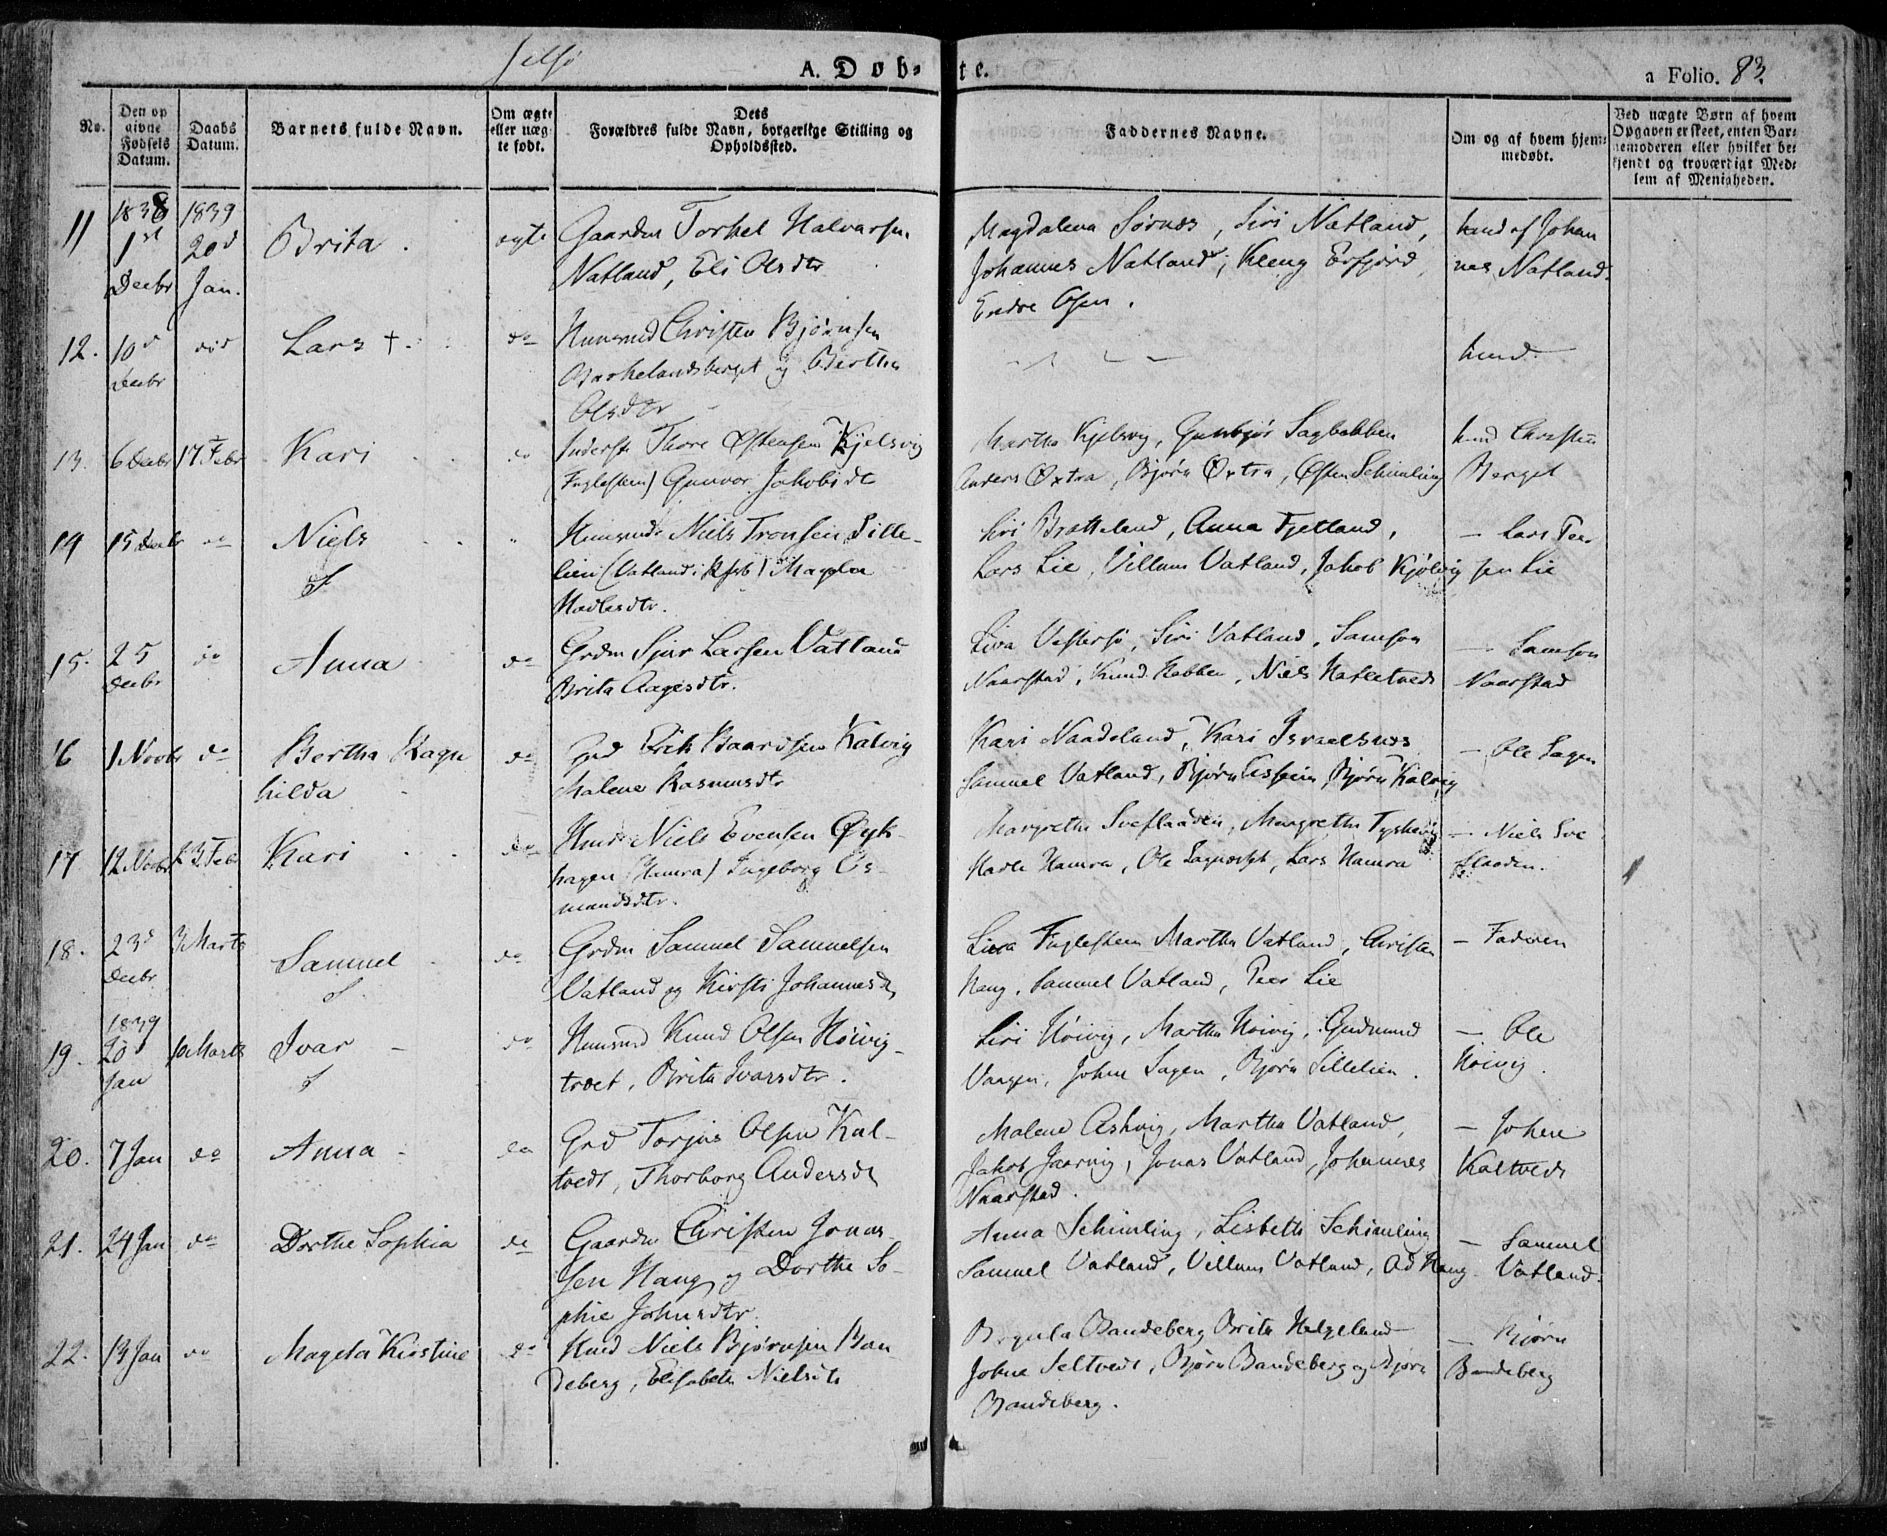 Jelsø
A. Døb-te.
a Folio. 83.
No.
Den opgivne Fødsels Datum.
Daabs Datum.
Barnets fulde Navn.
Om ægte eller uægte født.
Dets Forældres fulde Navn, borgerlige Stilling og Opholdssted.
Faddernes Navne.
Om og af hvem hjemmedøbt.
Ved uægte Børn af hvem Opgaven er skeet, enten Barnemoderen eller hvilket bekjendt og troværdigt Medlem af Menigheden.
11 1838 1st Decbr 1839 20d Jan. Brita ægte
Gaardm Torkel Halvorsen
Natland, Eli Olsdtr
Magdalena Sørnæs, Siri Natland,
Johannes Natland, Kleng Erfjord,
Endre Osen.
hmd af Johan
nes Natland.
12. 10d Decbr Lars † do
Huusmd Christen Bjørnsen
Barkelandsberget og Bertha
Olsdtr
hmd
13. 6 Decbr 17 Febr Kari do
Inderste Thore Østensen Kjelsvig
(Fuglesteen) Gunvor Jakobsdt
Martha Kjelsvig, Gunbjør Sagbakken
Anders Øxtra, Bjørn Øxtra, Østen Schimling
hmd Christen
Berget
14 15 Decbr do Niels
S
Huusmd Niels Tronsen Sille-
lien (Vatland i ) Magela
Hadlesdtr.
Siri Bratteland, Anna Fjetland,
Lars Lie, Villum Vatland, Jakob Kjølvig
– Lars Peer
sen Lie
15. 25 Decbr do Anna do
Grdm Sjur Larsen Vatland
Brita Aagesdtr.
Liva Vestersø, Siri Vatland, Samson
Naarstad, Knud Nabben, Niels Hatletvedt
– Samson
Naarstad
16 1 Novbr do Bertha Ragn
hilda do
Grd Erik Baardsen Kalvig
Malene Rasmusdtr
Kari Naadeland, Kari Israelsnæs
Samuel Vatland, Bjørn , Bjørn Kalvig
– Ole Sagen
17 12 Novbr 23 Febr Kari do
Hmd Niels Evensen Øyk-
hagen (Hamra) Ingeborg Os-
mundsdtr.
Margrethe Sveflaaden, Margrethe Tysketvig
Hadle Hamra, Ole , Lars Hamra
– Niels Sve
flaaden.
18. 23d Decbr 3 Marts Samuel
S do
Grdm Samuel Samuelsen
Vatland og Kirsti Johannesdtr
Liva Fuglesteen Martha Vatland, Christen
Haug, Samuel Vatland, Peer Lie
– Faderen
19. 1839 20d Jan 10 Marts Ivar –
S do
Huusmd Knud Olsen Høivig-
trøet, Brita Ivarsdtr.
Siri Høivig, Martha Høivig, Gudmund
Vaagen, Johne Sagen, Bjørn Sillelien.
– Ole
Høivig.
20. 7 Jan do Anna – do
Grd Torjus Olsen Kal-
tvedt, Thorborg Andersdtr
Malene Askvig, Martha Vatland,
Jakob Jaarvig, Jonas Vatland, Johannes
Naarstad.
– Johne
Kaltvedt
21. 24 Jan do Dorthe Sophia do
Gaardm Christen Jonas-
sen Haug og Dorthe So-
phie Johnsdtr
Anna Schimling, Lisbeth Schimling
Samuel Vatland, Villum Vatland, Ad Haug
– Samuel
Vatland.
22. 13 Jan do Magela Kirstine do
Hmd Niels Bjørnsen Ban
deberg, Elisabeth Nielsdtr
Bandeberg Brita Helgeland
Johne Seltvedt, Bjørn Bandeberg og Bjørn
Bandeberg.
– Bjørn
Bandeberg